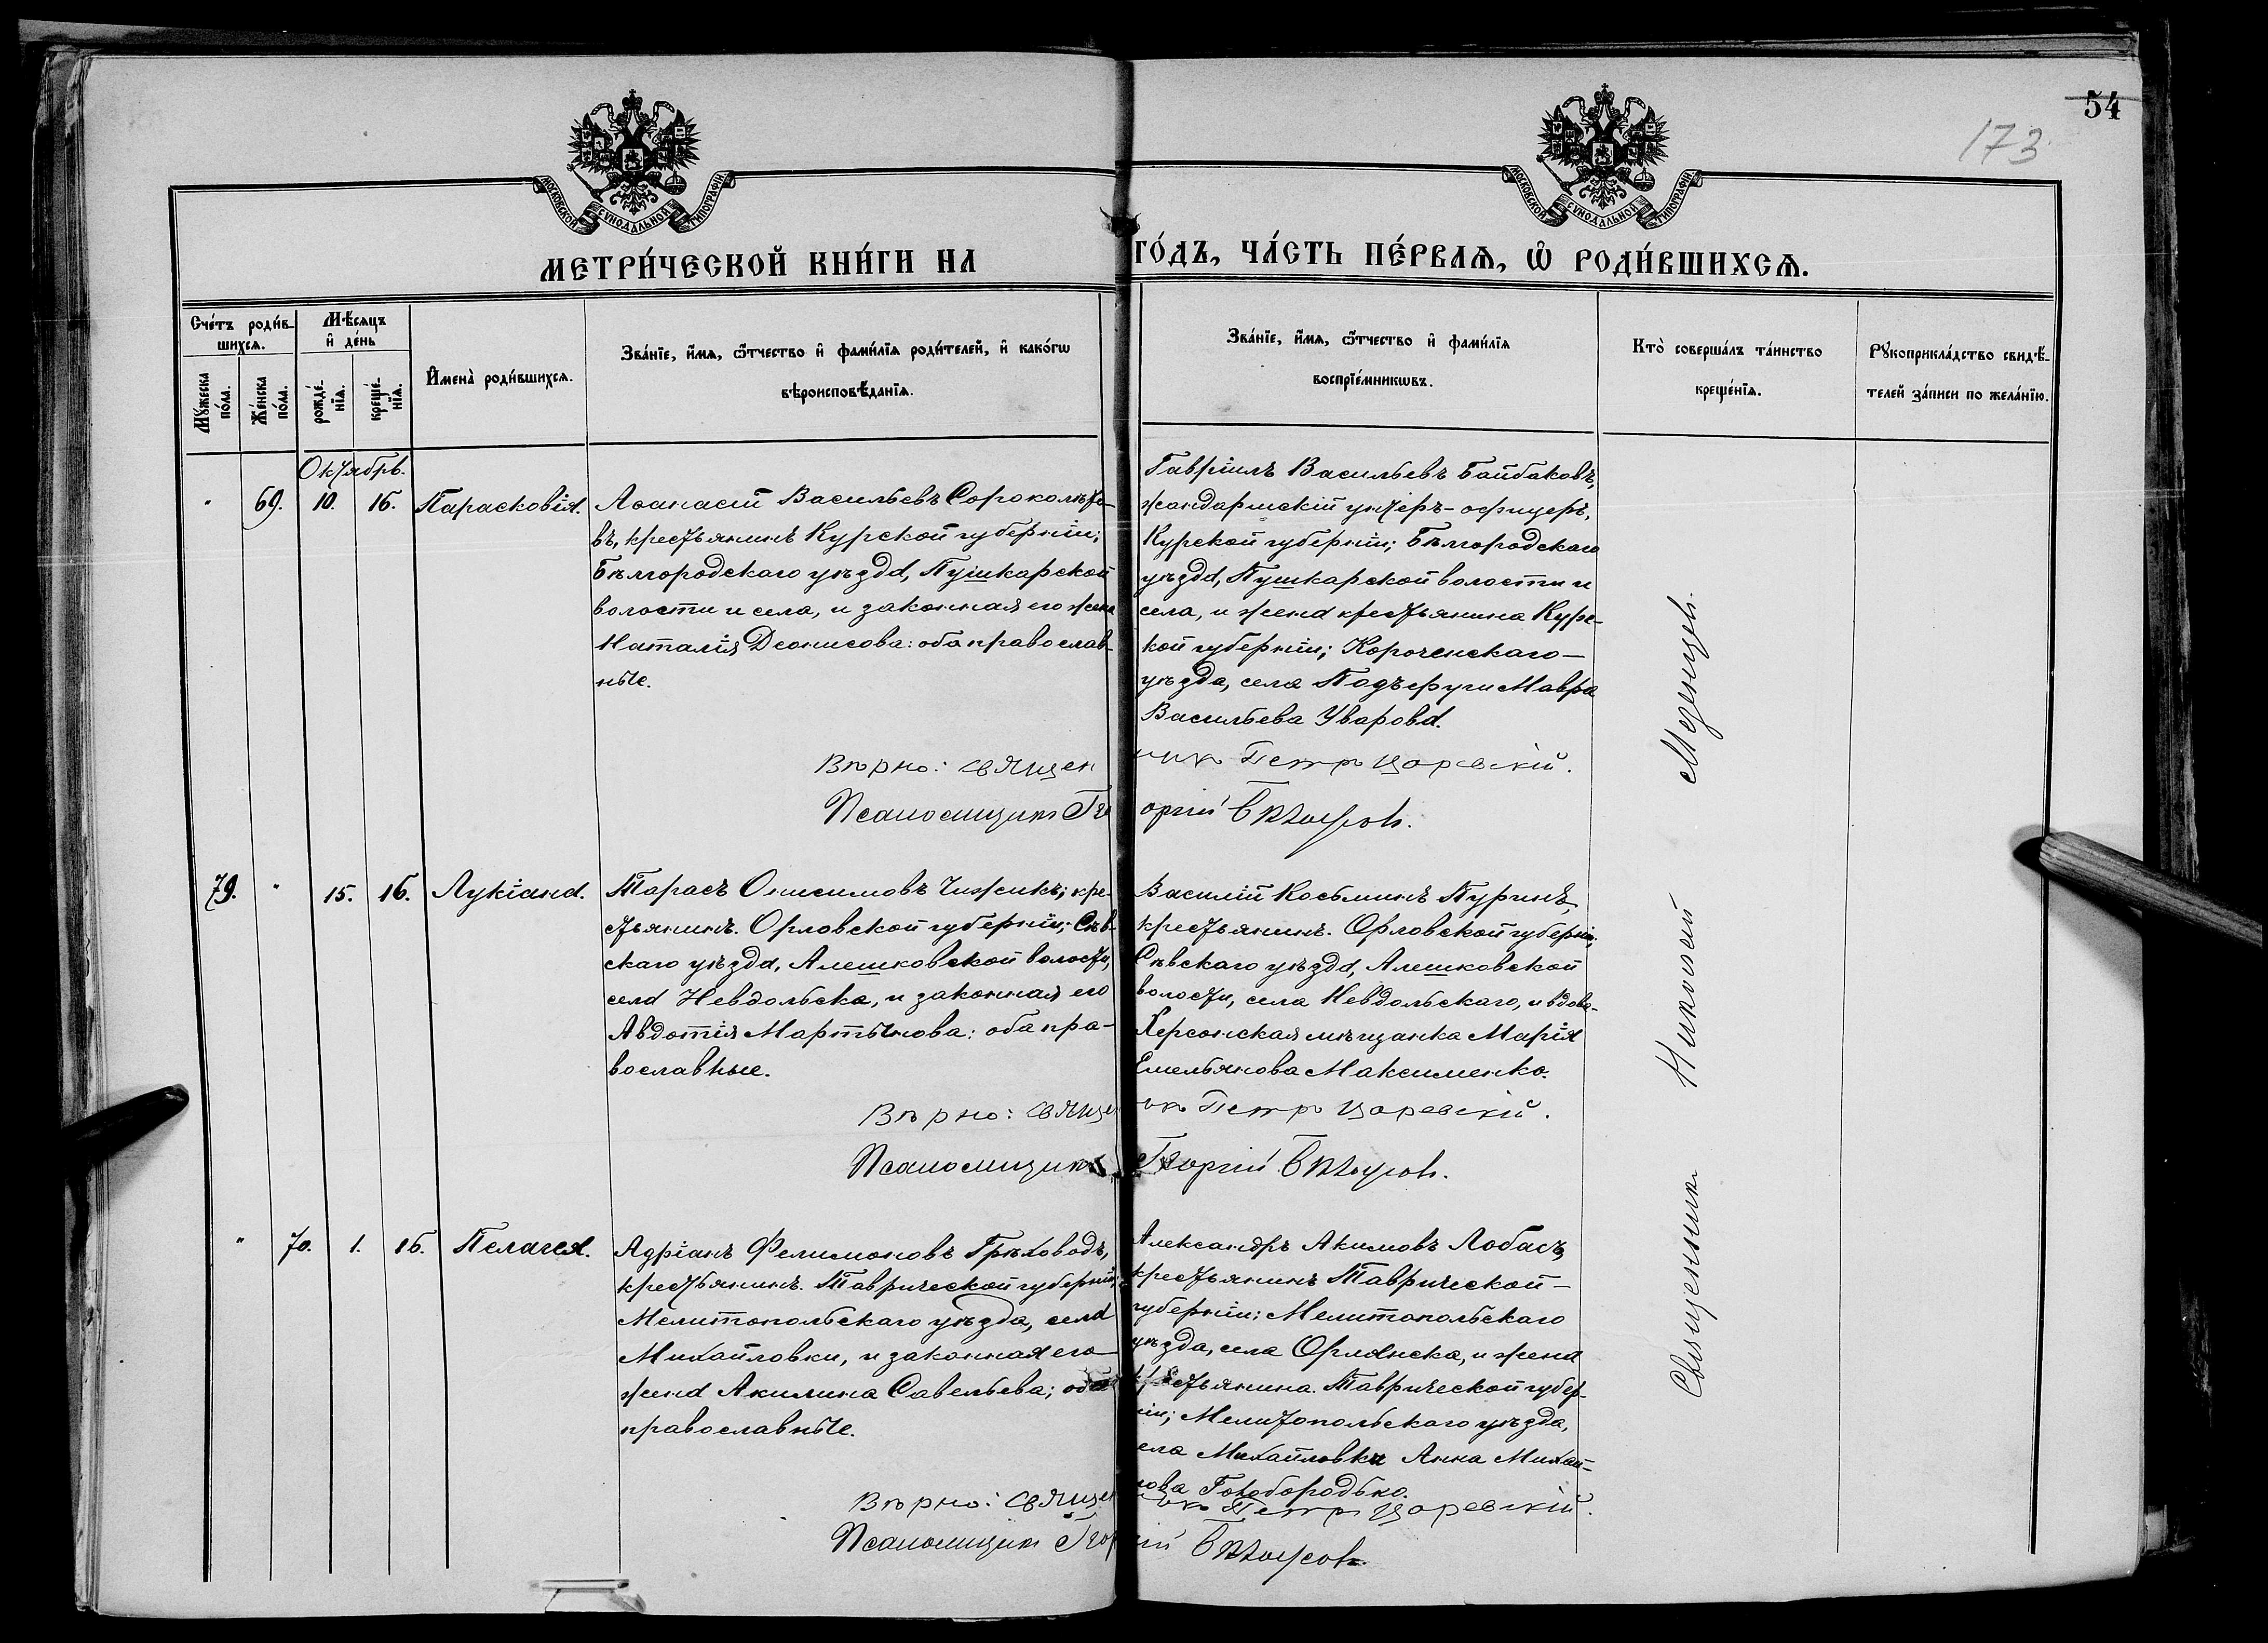 54
173
МОСКОВСКОЙ СѴНОДАЛЬНОЙ ТИПОГРАФІИ
МОСКОВСКОЙ СѴНОДАЛЬНОЙ ТИПОГРАФІИ
МЕТРИ́ЧЕСКОЙ КНИ́ГИ НА ГО́ДЪ, ЧА́СТЬ ПЕ́РВАѦ, Ѽ РОДИ́ВШИХСѦ.
Сче́тъ роди́в-
шихсѧ.
Мꙋ́жеска по́ла.
Же́нска по́ла.
Мѣ́сяцъ
и҆ де́нь
рожде́-
нїѧ.
креще́-
нїѧ.
И҆мена̀ роди́вшихсѧ.
Зва́нїе, и҆́мѧ, ѻ҆́тчество и҆ фами́лїѧ роди́телей, и҆ како́гѡ
вѣроисповѣ́данїѧ.
Зва́нїе, и҆́мѧ, ѻ҆́тчество и҆ фами́лїѧ
воспрїе́мникѡвъ.
Кто̀ соверша́лъ та́инство
креще́нїѧ.
Рꙋкоприкла́дство свидѣ́-
телей за́писи по жела́нїю.
Октябрь.
" 69. 10. 16. Парасковія.
Аѳанасій Васильевъ Сороколѣто-
въ, крестьянинъ Курской губерніи;
Бѣлгородскаго уѣзда, Пушкарской
волости и села, и законная его жена
Наталія Деонисова: оба православ-
ные.
Гавріилъ Васильевъ Байбаковъ,
жандармскій унтеръ-офицеръ,
Курской губерніи; Бѣлгородскаго
уѣзда, Пушкарской волости и
села, и жена крестьянина Курс-
кой губерніи; Короченскаго
уѣзда, села Подъяруги Мавра
Васильева Уварова.
Вѣрно: Священникъ Петръ Царевскій.
Псаломщикъ Георгій
79. " 15. 16. Лукіанъ.
Тарасъ Онисимовъ Чижикъ; кре-
стьянинъ. Орловской губерніи; Сѣв-
скаго уѣзда, Алешковской волости,
села Невдольска, и законная его
Авдотія Мартынова: оба пра-
вославные.
Василій Косьминъ Пуринъ,
крестьянинъ. Орловской губерніи;
Сѣвскаго уѣзда, Алешковской
волости, села Невдольскаго, и вдова-
Херсонская мѣщанка Марія
Емельянова Максименко.
Вѣрно: Священникъ Петръ Царевскій.
Псаломщикъ Георгій
" 70. 1. 16. Пелагея.
Адріанъ Филимоновъ Грѣховодъ,
крестьянинъ. Таврической губерніи;
Мелитопольскаго уѣзда, села
Михайловки, и законная его
жена Акилина Савельева; оба
православные.
Александръ Акимовъ Лобасъ,
крестьянинъ Таврической
губерніи; Мелитопольскаго
уѣзда, села Орлянска, и жена
крестьянина. Таврической губер-
ніи; Мелитопольскаго уѣзда,
села Михайловки Анна Михай-
лова Голобородько.
Вѣрно: Священникъ Петръ Царевскій.
Псаломщикъ Георгій
Священникъ Николай Мезенцевъ.